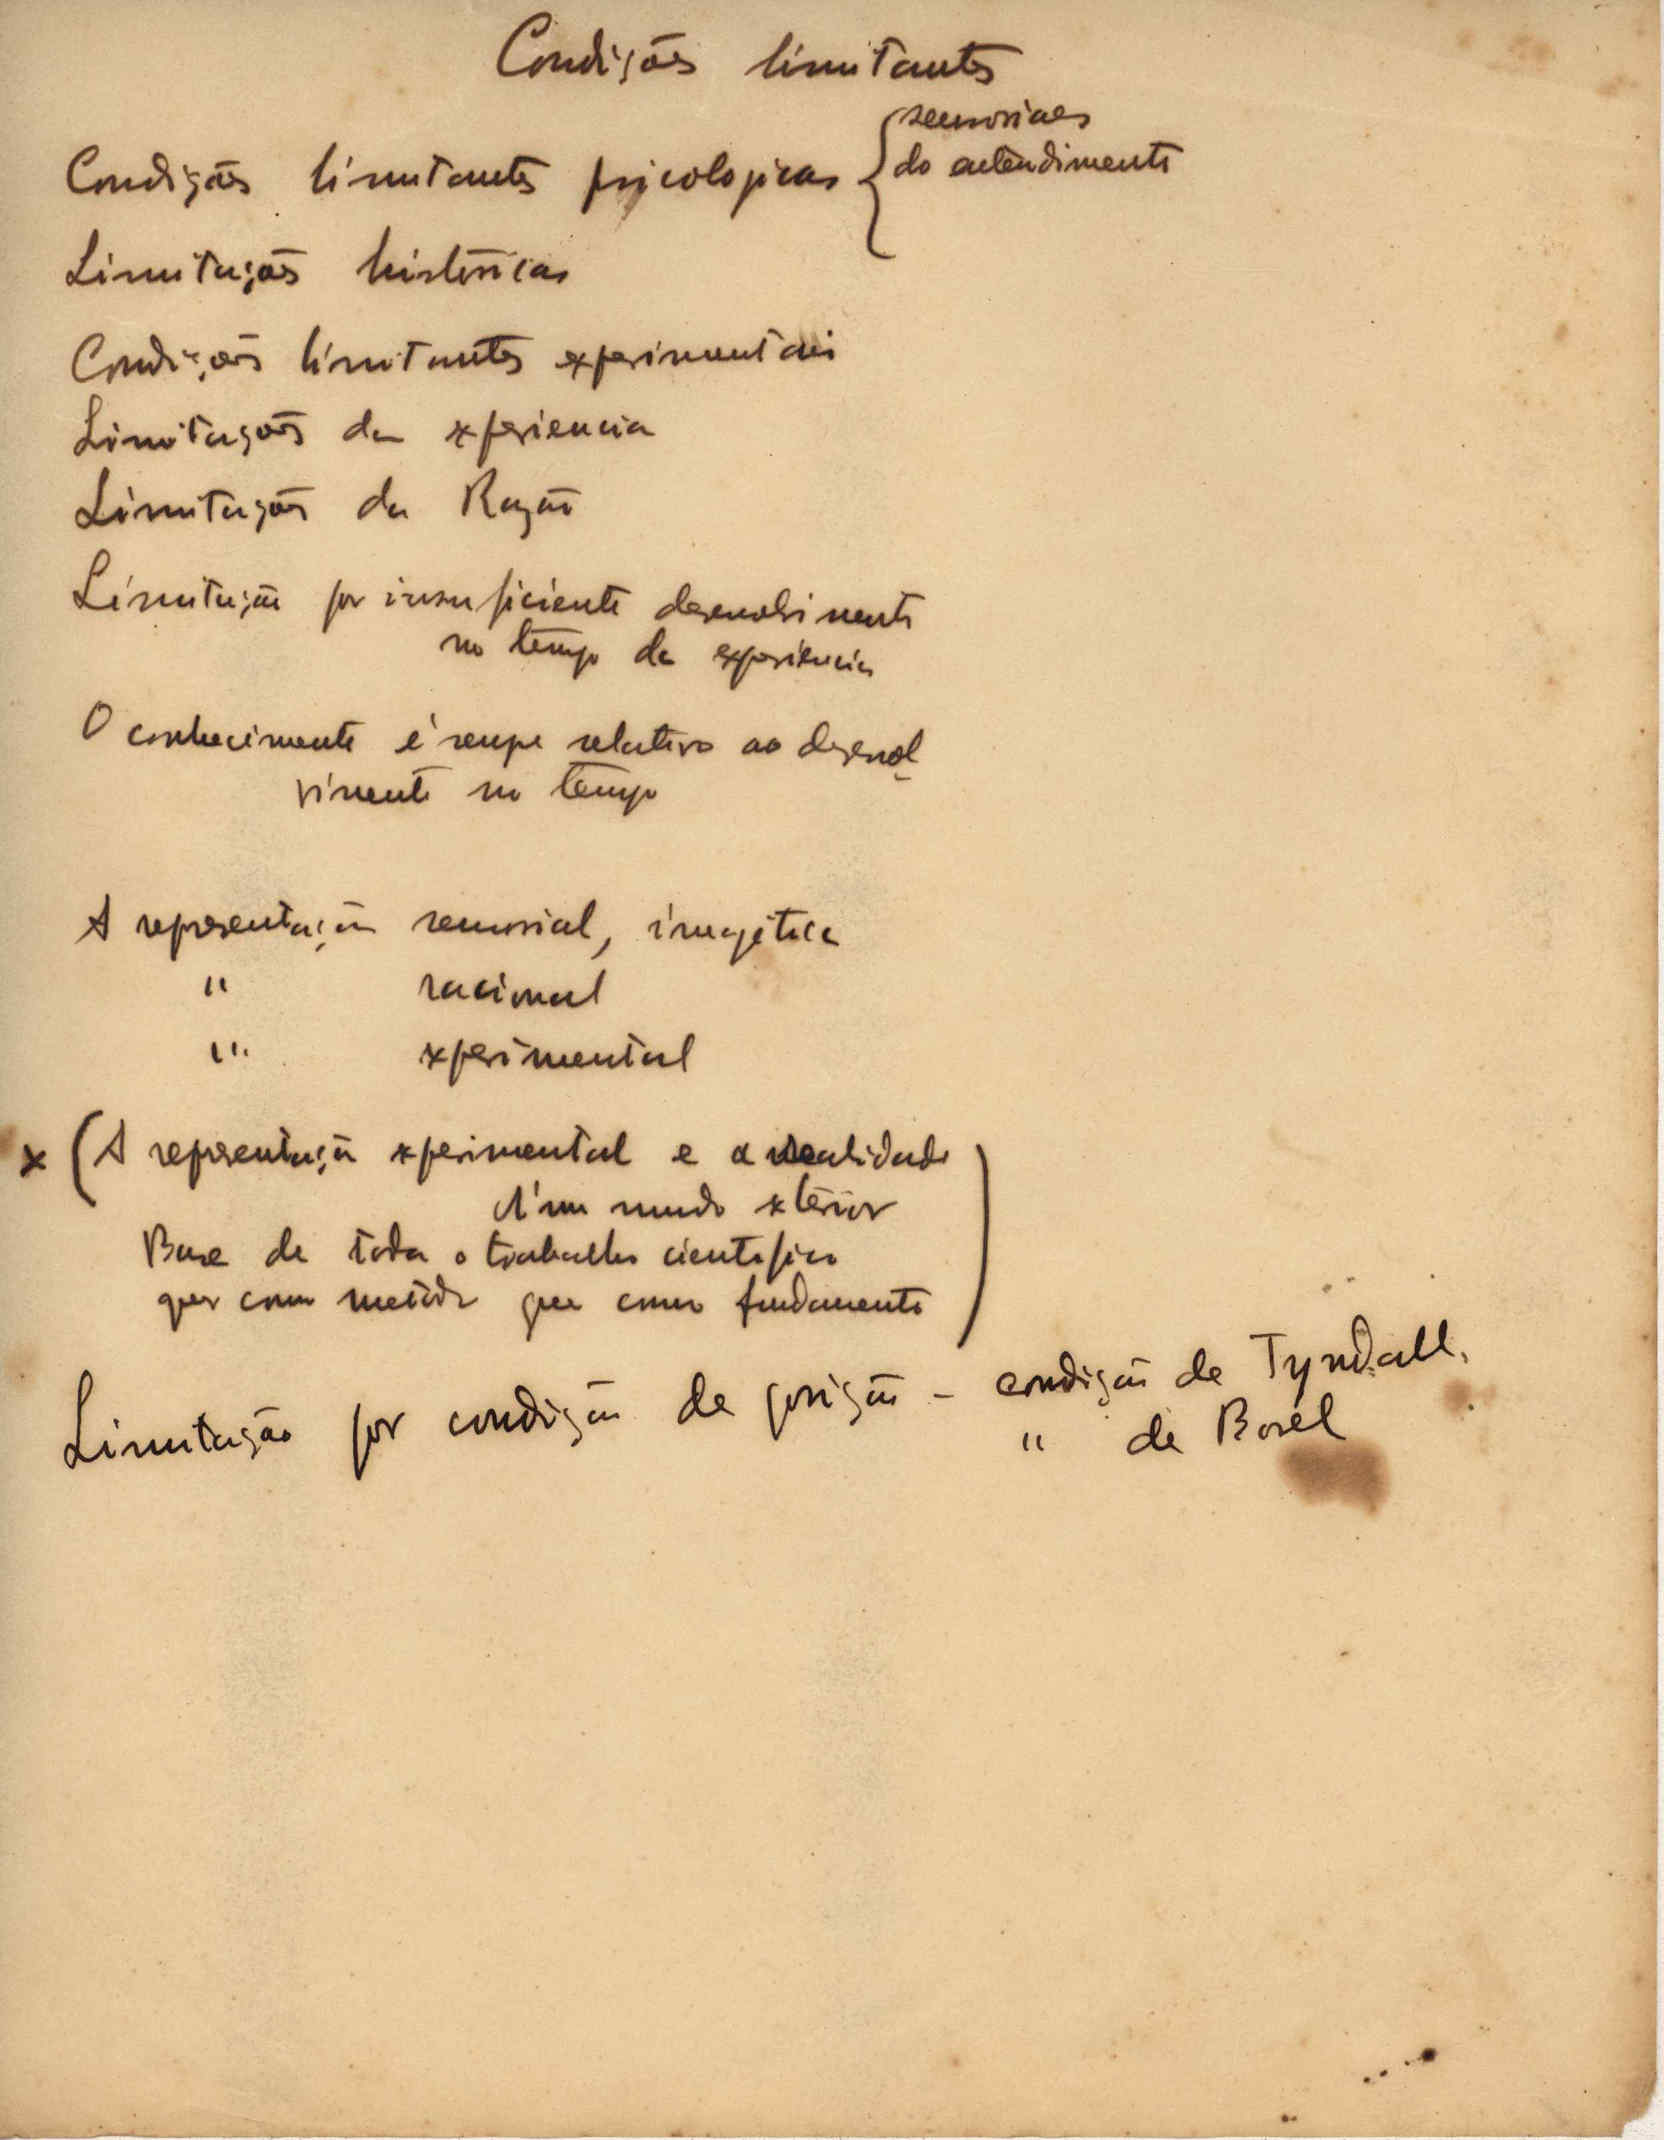 Condições limitantes
Condições limitantes psicologicas { sensoriaes
do entendimento
Limitações históricas
Condições limitantes experimentais
Limitações da experiencia
Limitações da Razão
Limitação por insuficiente desenvolvimento
no tempo da experiencia
O conhecimento é sempre relativo ao desenvol-
vimento no tempo
A representação sensorial, imagética
" racional
" experimental
x (A representação experimental e a realidade
d'um mundo exterior
Base de todo o trabalho cientifico
quer como metodo quer como fundamento)
Limitação por condição de posição - condição de Tyndall.
" de Borel